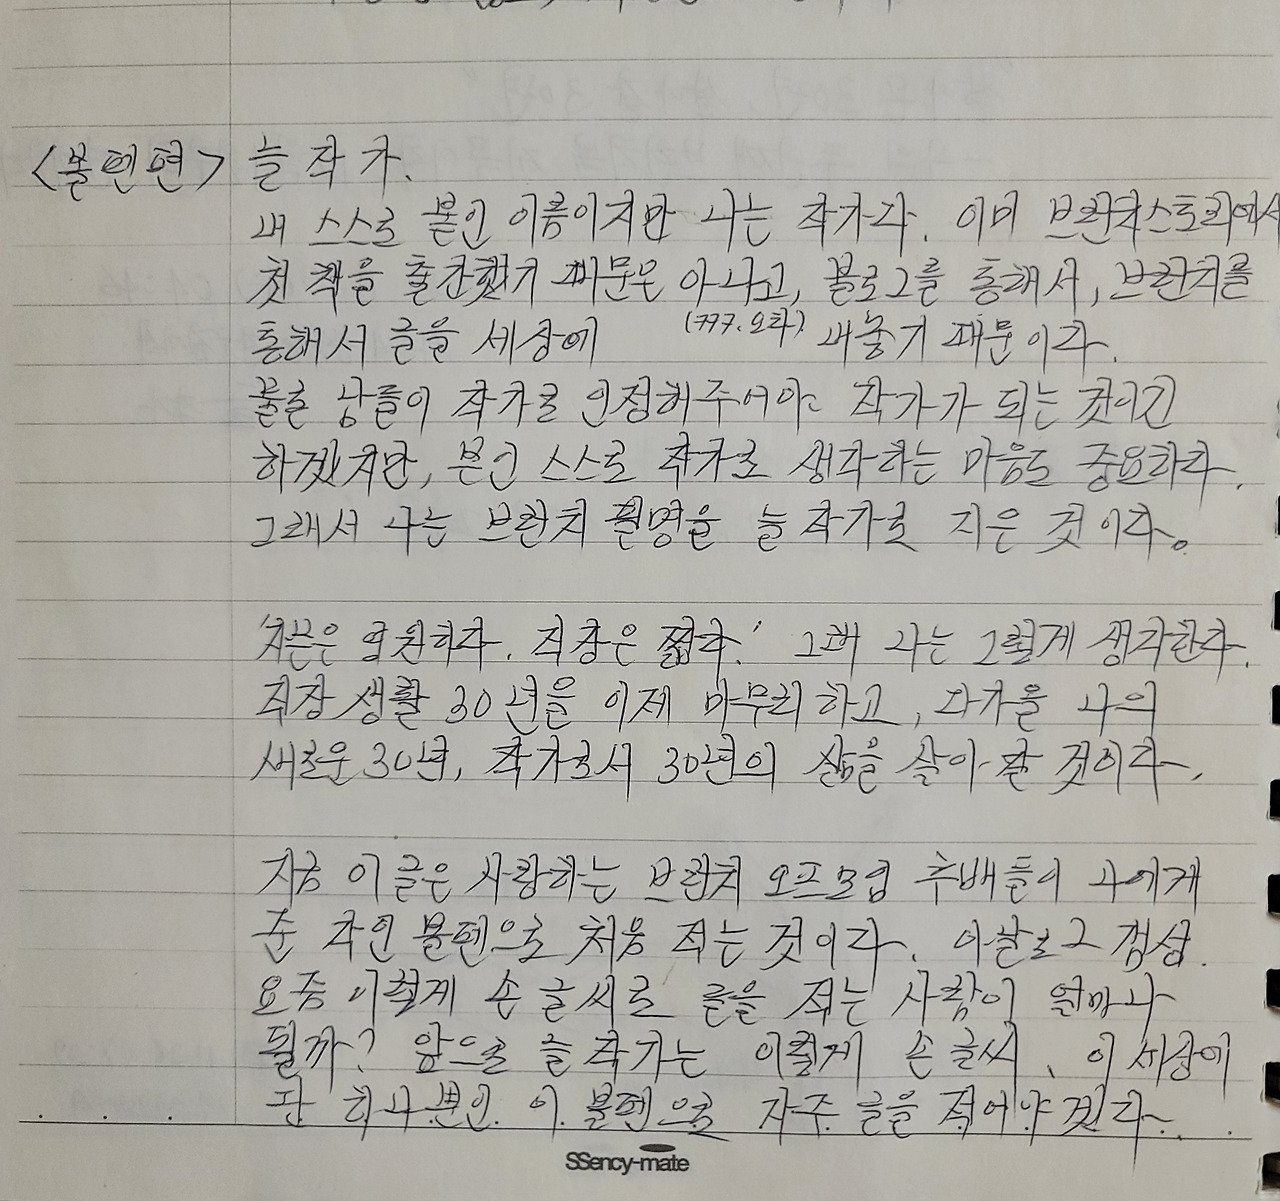 <볼펜편> 늘 작가.
내 스스로 붙인 이름이지만 나는 작가다. 이미 브런치스토리에서
첫 책을 출간했기 때문은 아니고, 블로그를 통해서, 브런치를
통해서 글을 세상에 (777. 오화) 내놓기 때문이다.
물론 남들이 작가로 인정해주어야 작가가 되는 것이긴
하겠지만, 본인 스스로 작가로 생각하는 마음도 중요하다.
그래서 나는 브런치 필명을 늘 작가로 지은 것이다.
'차끈은 영원하다. 직장은 짧다.' 그래 나는 그렇게 생각한다.
직장 생활 30년을 이제 마무리하고, 다가올 나의
새로운 30년, 작가로서 30년의 삶을 살아갈 것이다.
지금 이 글은 사랑하는 브런치 오프모임 후배들이 나에게
준 각인 볼펜으로 처음 적는 것이다. 아날로그 감성.
요즘 이렇게 손 글씨로 글을 적는 사람이 얼마나
될까? 앞으로 늘 작가는 이렇게 손 글씨, 이 세상에
단 하나뿐인 이 볼펜으로 자주 글을 적어야겠다.
SSency-mate